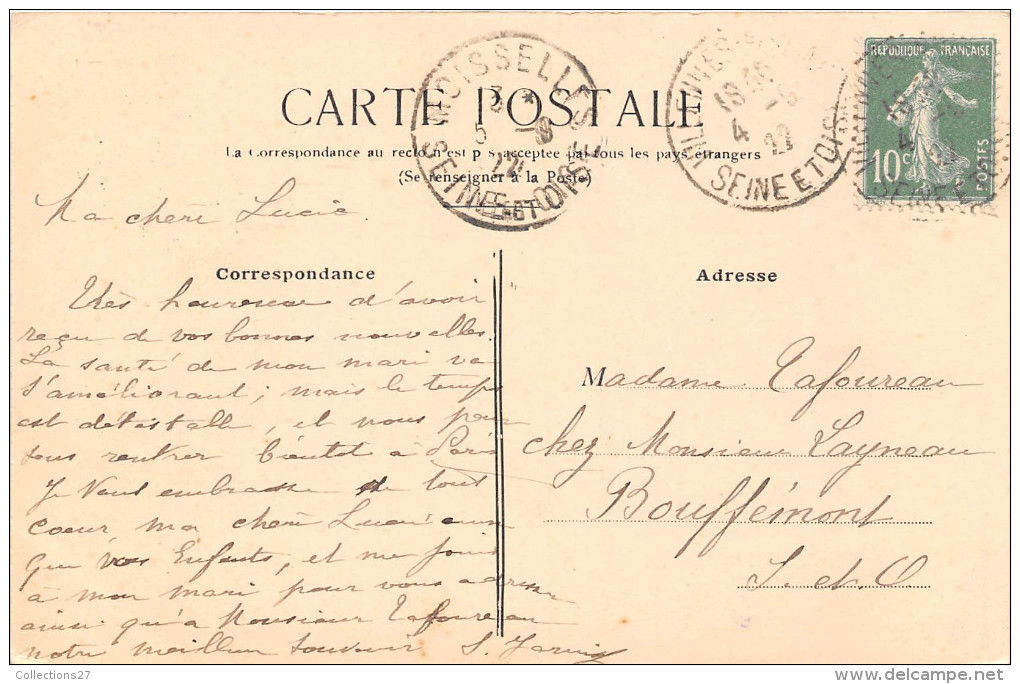 CARTE POSTALE
La Correspondance au recto n'est pas acceptée par tous les pays étrangers
(Se renseigner à la Poste)
MOISSELLES
5
22
SEINE-ET-OISE
18 45
4
22
SEINE ET OISE
REPUBLIQUE FRANÇAISE
10c
POSTES
Ma chère Lucie
Correspondance
Très heureuse d'avoir
reçu de vos bonnes nouvelles.
La santé de mon mari va
s'améliorant; mais le temps
est détestable, et nous pen
sons rentrer bientôt à Paris
Je vous embrasse de tout
coeur, ma chère Lucie ainsi
que vos Enfants, et me joins
à mon mari pour vous adresser
ainsi qu'à Monsieur Lafoureau
notre meilleur souvenir S.
Adresse
Madame Lafoureau
chez Monsieur Layneau
Bouffémont
S. et O
Collections27
www.delcampe.net